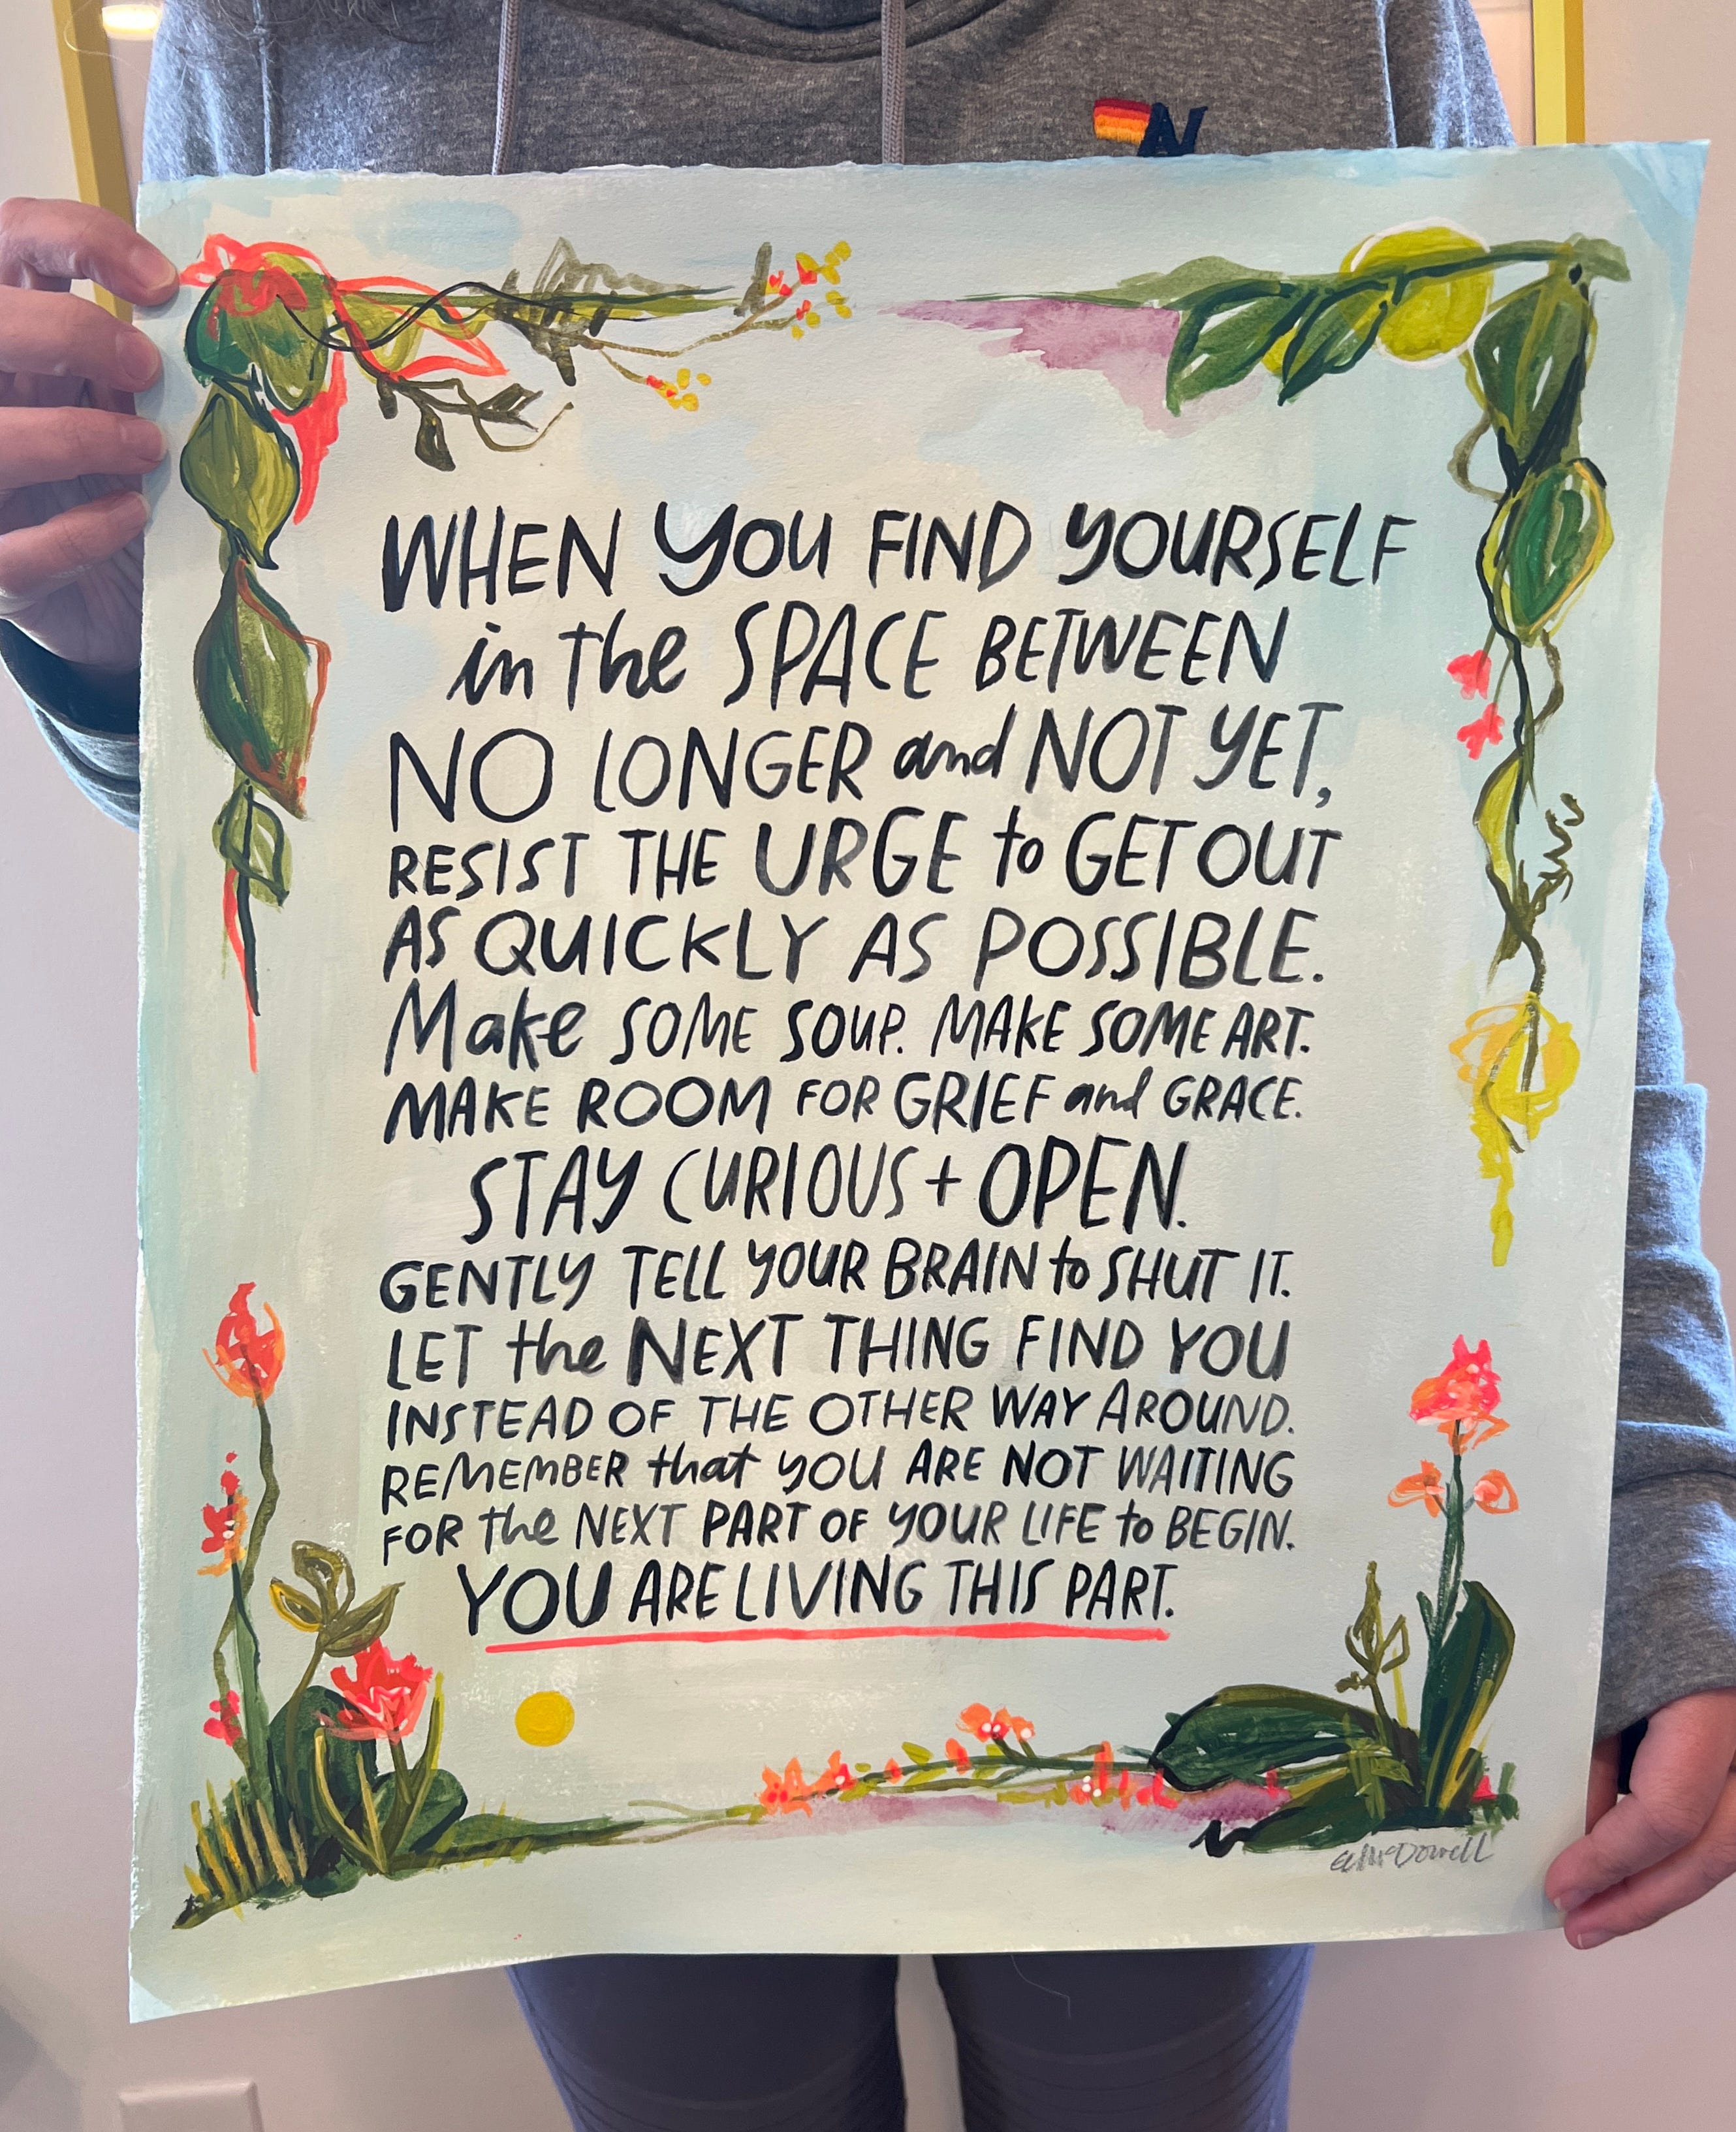 WHEN YOU FIND YOURSELF
in the SPACE BETWEEN
NO LONGER and NOT YET,
RESIST THE URGE to GET OUT
AS QUICKLY AS POSSIBLE.
Make SOME SOUP. MAKE SOME ART.
MAKE ROOM FOR GRIEF and GRACE.
STAY CURIOUS + OPEN.
GENTLY TELL YOUR BRAIN to SHUT IT.
LET the NEXT THING FIND YOU
INSTEAD OF THE OTHER WAY AROUND.
REMEMBER that YOU ARE NOT WAITING
FOR the NEXT PART OF YOUR LIFE to BEGIN.
YOU ARE LIVING THIS PART.